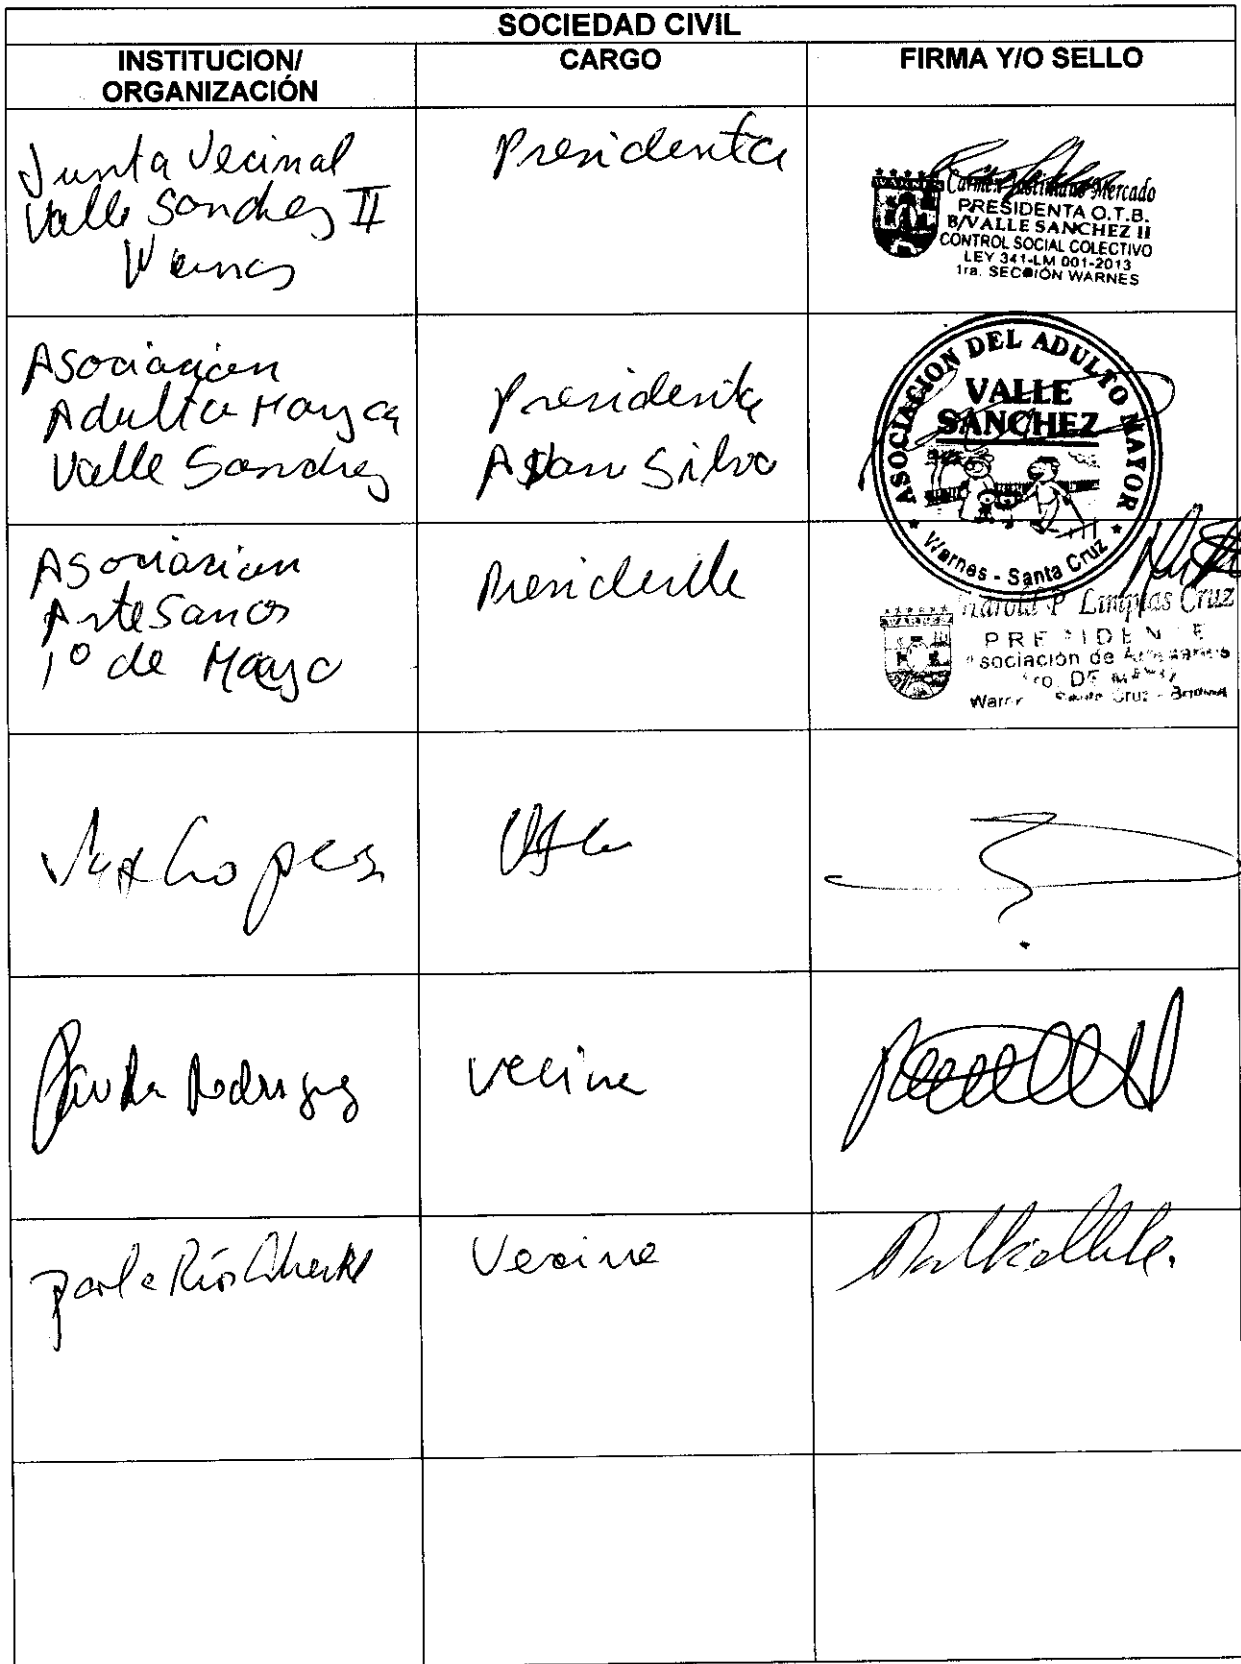 SOCIEDAD CIVIL
INSTITUCION/
ORGANIZACIÓN
CARGO
FIRMA Y/O SELLO
Junta Vecinal
Valle Sanchez II
Warnes
Presidenta
WARNES
Carmen Mercado
PRESIDENTA O.T.B.
B/VALLE SANCHEZ II
CONTROL SOCIAL COLECTIVO
LEY 341-LM 001-2013
1ra. SECCIÓN WARNES
Asociacion
Adulto Mayor
Valle Sanchez
Presidente
Adan Silva
ASOCIACION DEL ADULTO MAYOR
VALLE
SANCHEZ
Warnes - Santa Cruz
Asociacion
Artesanos
1º de Mayo
Presidente
WARNES
Harold P. Limpias Cruz
PRESIDENTE
Asociación de Artesanos
1ro. DE MAYO
Warnes - Santa Cruz - Bolivia
Lopez
Rodriguez
vecina
Vecina